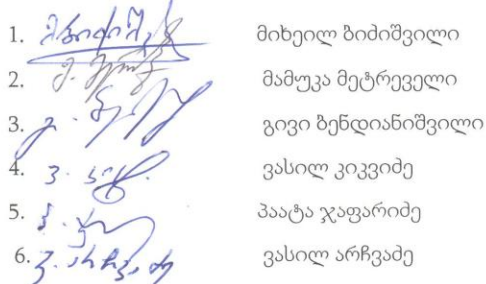 1. მიხეილ ზიძიშვილი
2. მამუკა მეტრეველი
3. გივი ზენდიანიშვილი
4. ვასილ კიკვიძე
5. პაატა ჯაფარიძე
6. ვასილ არჩვაძე